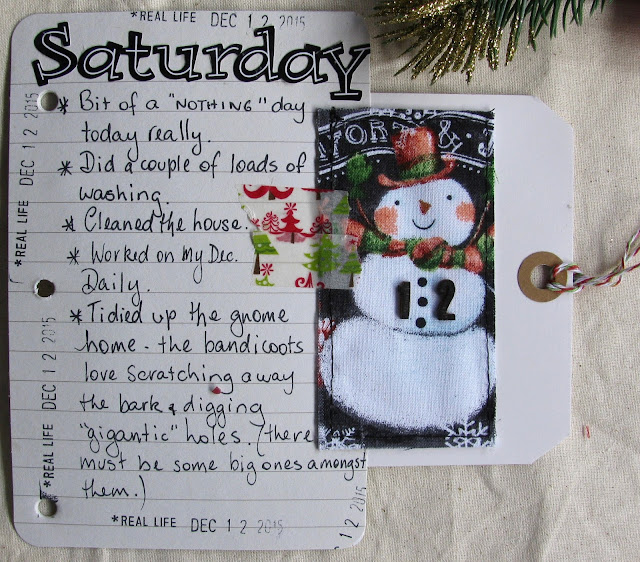 *REAL LIFE DEC 1 2 2015
Saturday
* Bit of a "NOTHING" day
today really.
* Did a couple of loads of
washing.
* Cleaned the house.
* Worked on my Dec.
Daily.
* Tidied up the gnome
home - the bandicoots
love scratching away
the bark & digging
"gigantic" holes. (there
must be some big ones amongst
them.)
*REAL LIFE DEC 1 2 2015
*REAL LIFE DEC 1 2 2015
*REAL LIFE DEC 1 2 2015
*REAL LIFE DEC 1 2 2015
1 2 2015
& 
12